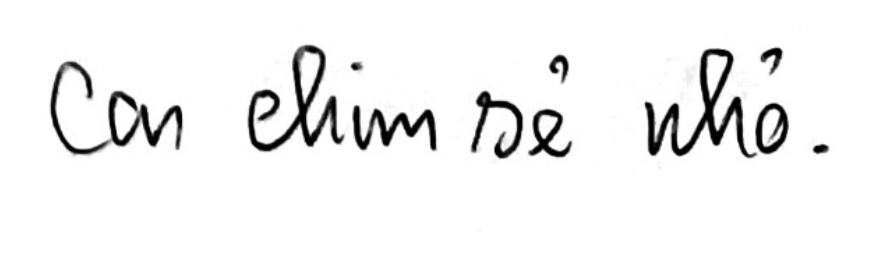 Con chim sẻ nhỏ.